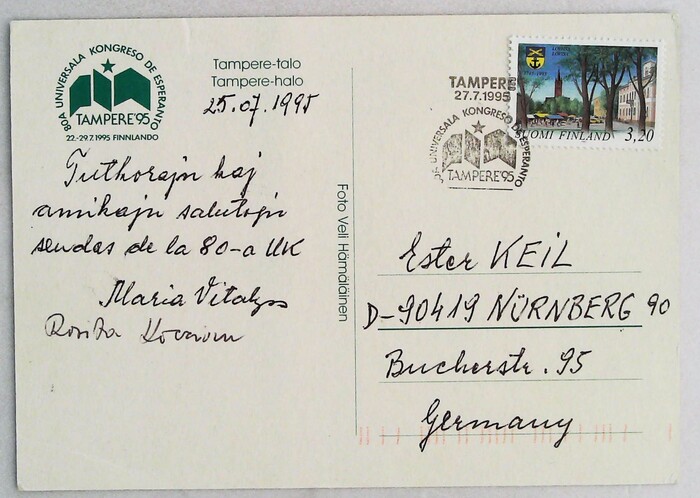 80A UNIVERSALA KONGRESO DE ESPERANTO
TAMPERE'95
22.-29.7.1995 FINNLANDO
Tampere-talo
Tampere-halo
25.07.1995
Tutkorajn kaj
amikajn salutojn
sendas de la 80-a UK
Maria
Foto Veli Hämäläinen
TAMPERE
27.7.1995
80A UNIVERSALA KONGRESO DE ESPERANTO
TAMPERE'95
SUOMI FINLAND
3,20
Ester KEIL
D-90419 NÜRNBERG 90
Bucherstr. 95
Germany